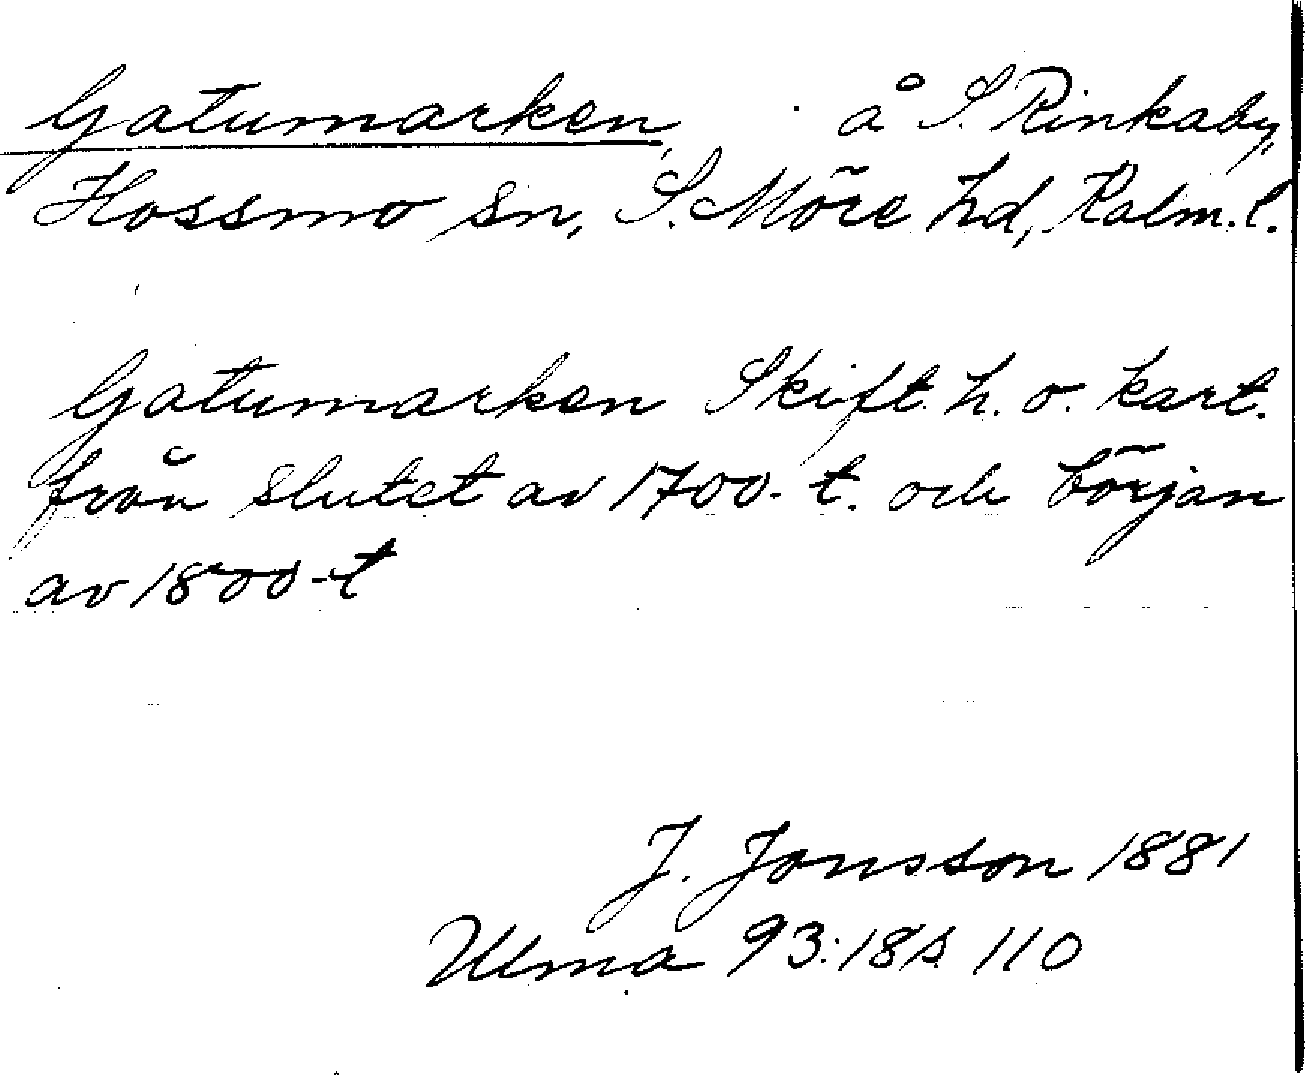 Gatumarken å S. Rinkaby,
Hossmo sn, S. Möre hd, Kalm. l.
Gatumarken Skift. h. o. kart.
från slutet av 1700-t. och början
av 1800-t
J. Jonsson 1881
Ulma 93:18 s. 110